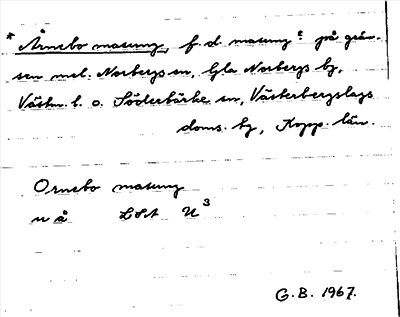 * Årnebo masung, f. d. masung? på grän-
sen mel. Norbergs sn, Gla Norbergs bg,
Västm. l. o. Söderbärke sn, Västerbergslags
doms. bg, Kopp. län.
Ornebo masung
u å LSA U³
G. B. 1967.